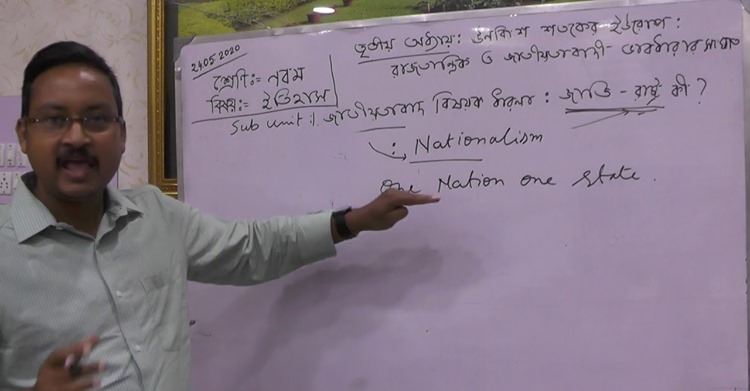 24.05.2020
শ্রেণি:- নবম
বিষয়:- ইতিহাস
তৃতীয় অধ্যায়: ঊনবিংশ শতকের ইউরোপ:
রাজতান্ত্রিক ও জাতীয়তাবাদী ভাবধারার সংঘাত
Sub unit: 1. জাতীয়তাবাদ বিষয়ক ধারণা: জাতি-রাষ্ট্র কী?
: Nationalism
One Nation one state.